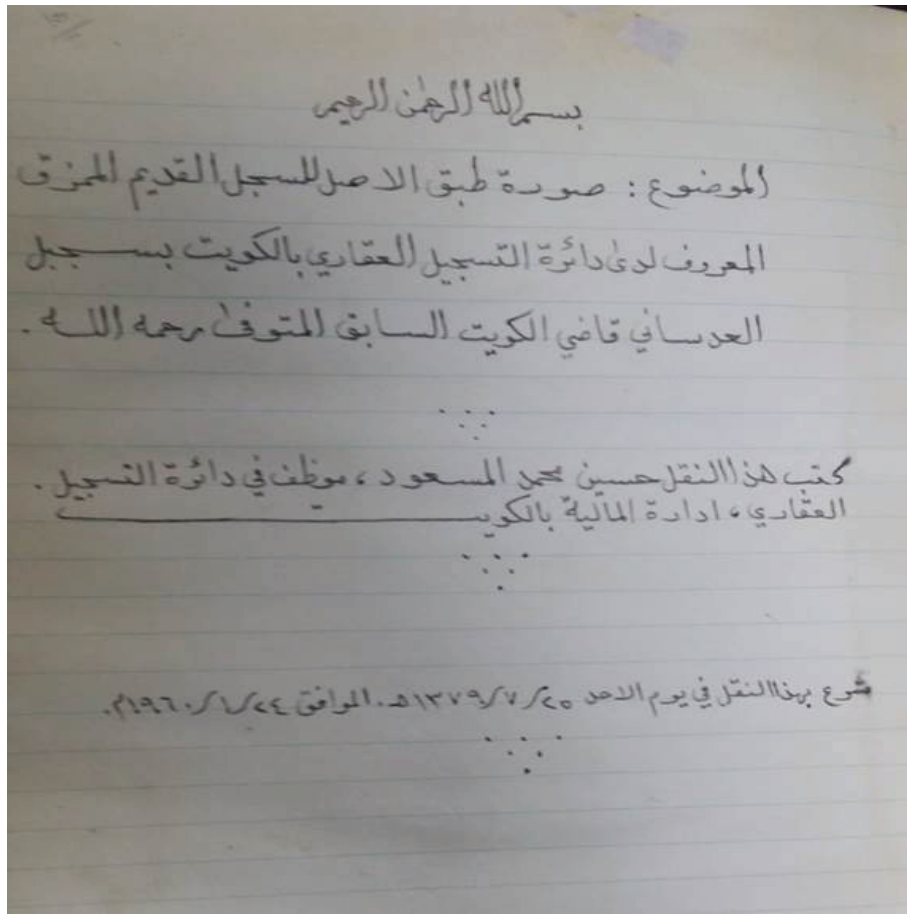 بسم الله الرحمن الرحيم
الموضوع : صورة طبق الاصل للسجل القديم الممزق
المعروف لدى دائرة التسجيل العقاري بالكويت بسجل
العدساني قاضي الكويت السابق المتوفى رحمه الله .
كتب هذا النقل حسين محمد المسعود ، موظف في دائرة التسجيل .
العقاري ، ادارة المالية بالكويت
شرع بهذا النقل في يوم الاحد ٢٥/٧/١٣٧٩ هـ . الموافق ٢٤/١/١٩٦٠م.